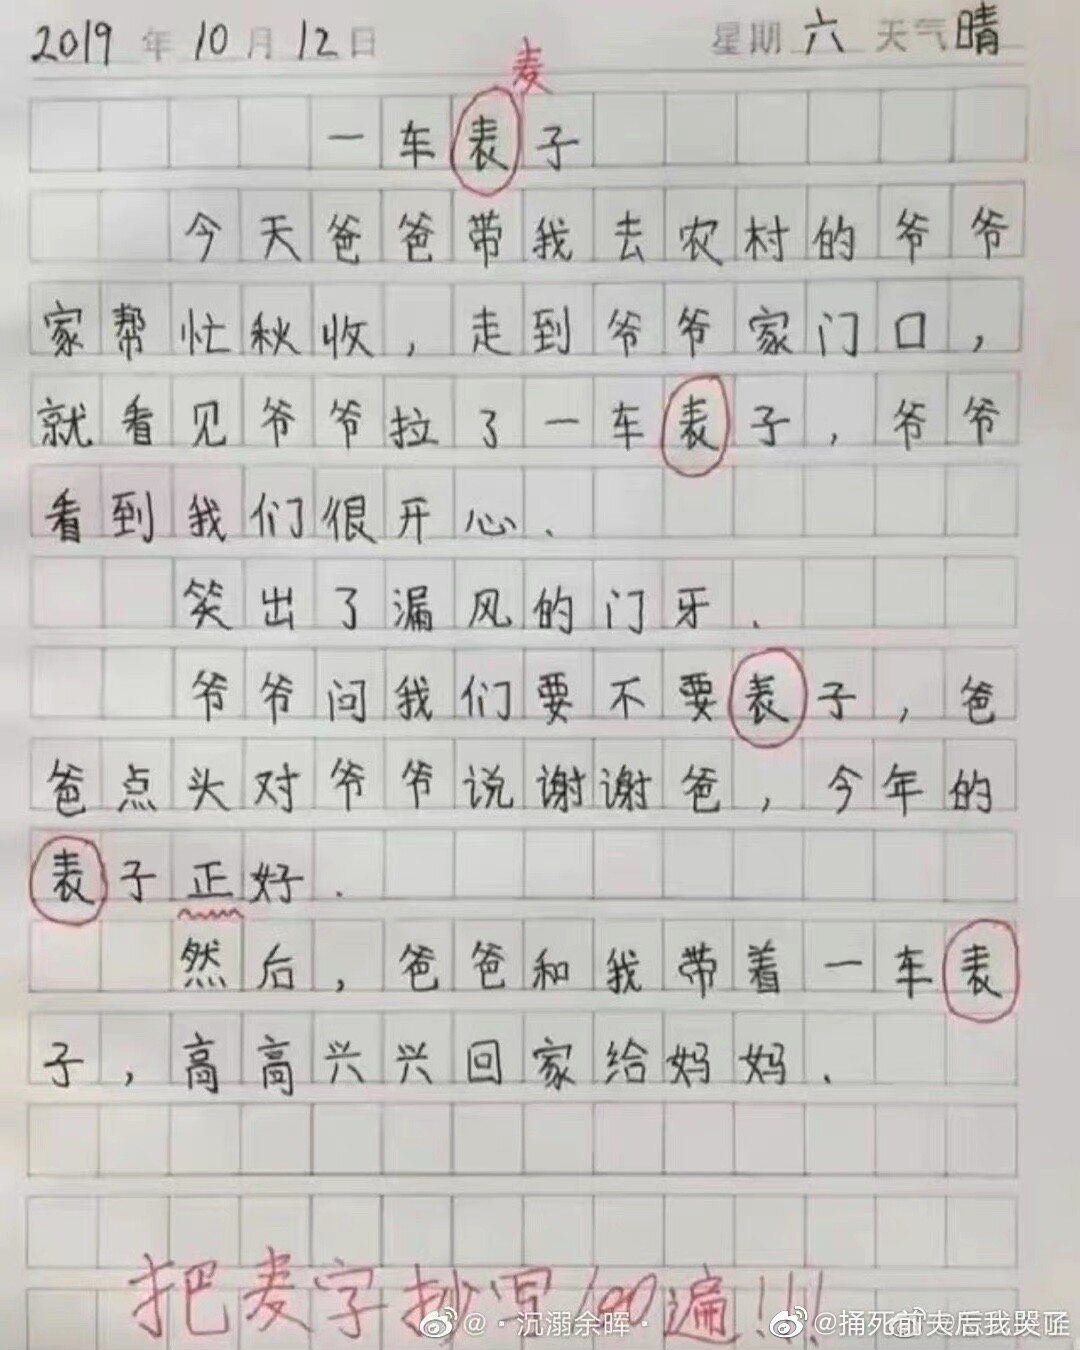 2019年10月12日 星期六 天气晴
麦
一车表子
今天爸爸带我去农村的爷爷
家帮忙秋收，走到爷爷家门口，
就看见爷爷拉了一车表子，爷爷
看到我们很开心.
笑出了漏风的门牙.
爷爷问我们要不要表子，爸
爸点头对爷爷说谢谢爸，今年的
表子正好.
然后，爸爸和我带着一车表
子，高高兴兴回家给妈妈.
把麦字抄写100遍!!!
@·沉溺余晖·
@捅死前夫后我哭诓